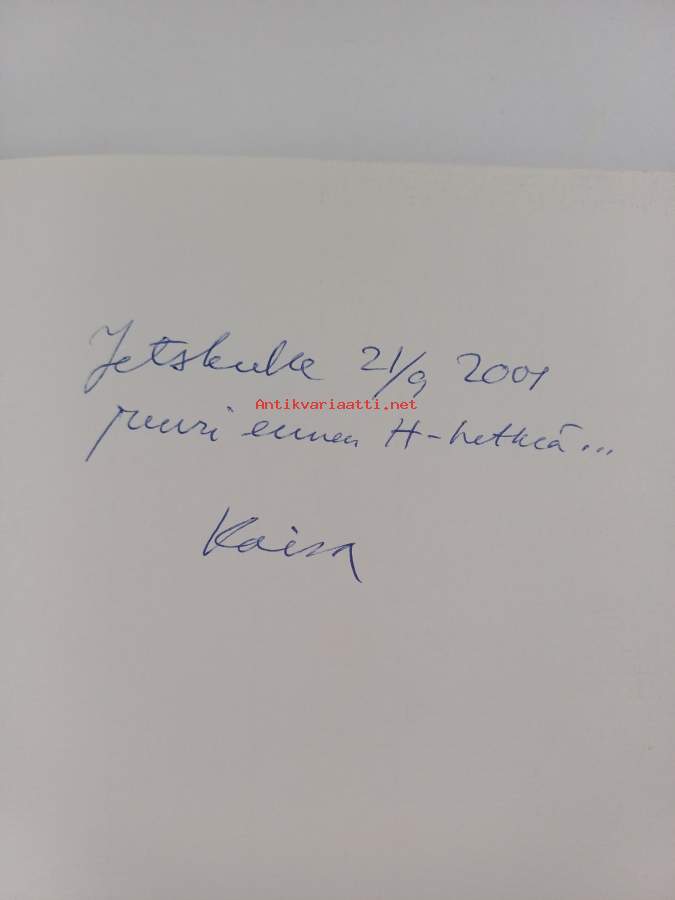 Jetskulle 21/9 2001
Antikvariaatti.net
juuri ennen H-hetkeä...
Kaisa